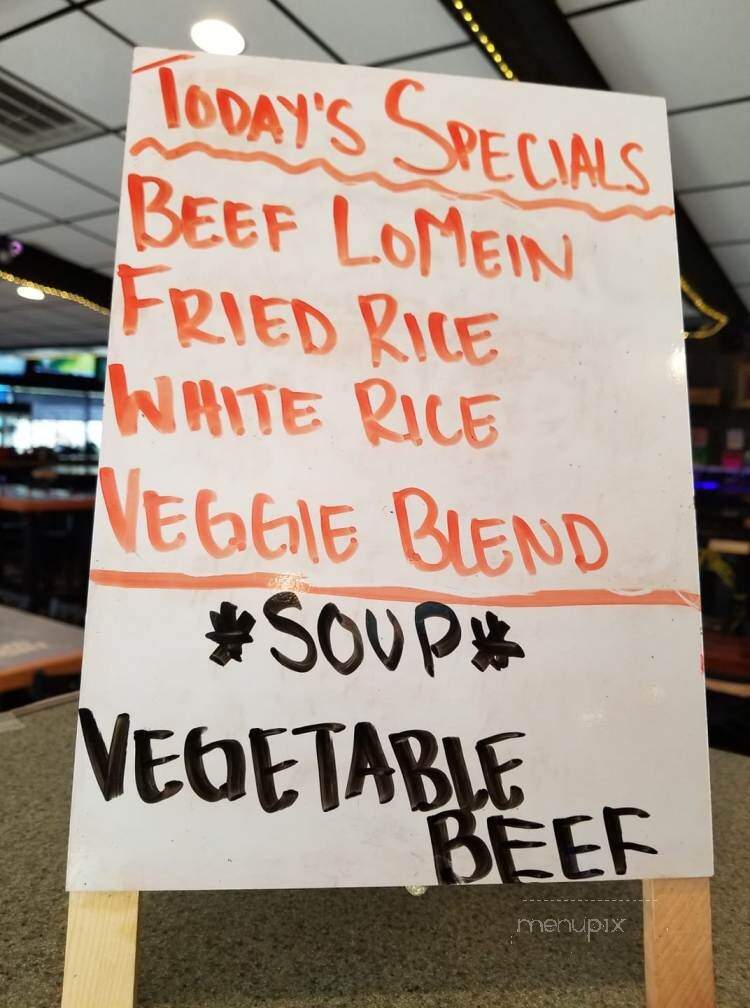 TODAY'S SPECIALS
BEEF LOMEIN
FRIED RICE
WHITE RICE
VEGGIE BLEND
*SOUP*
VEGETABLE
BEEF
menupix